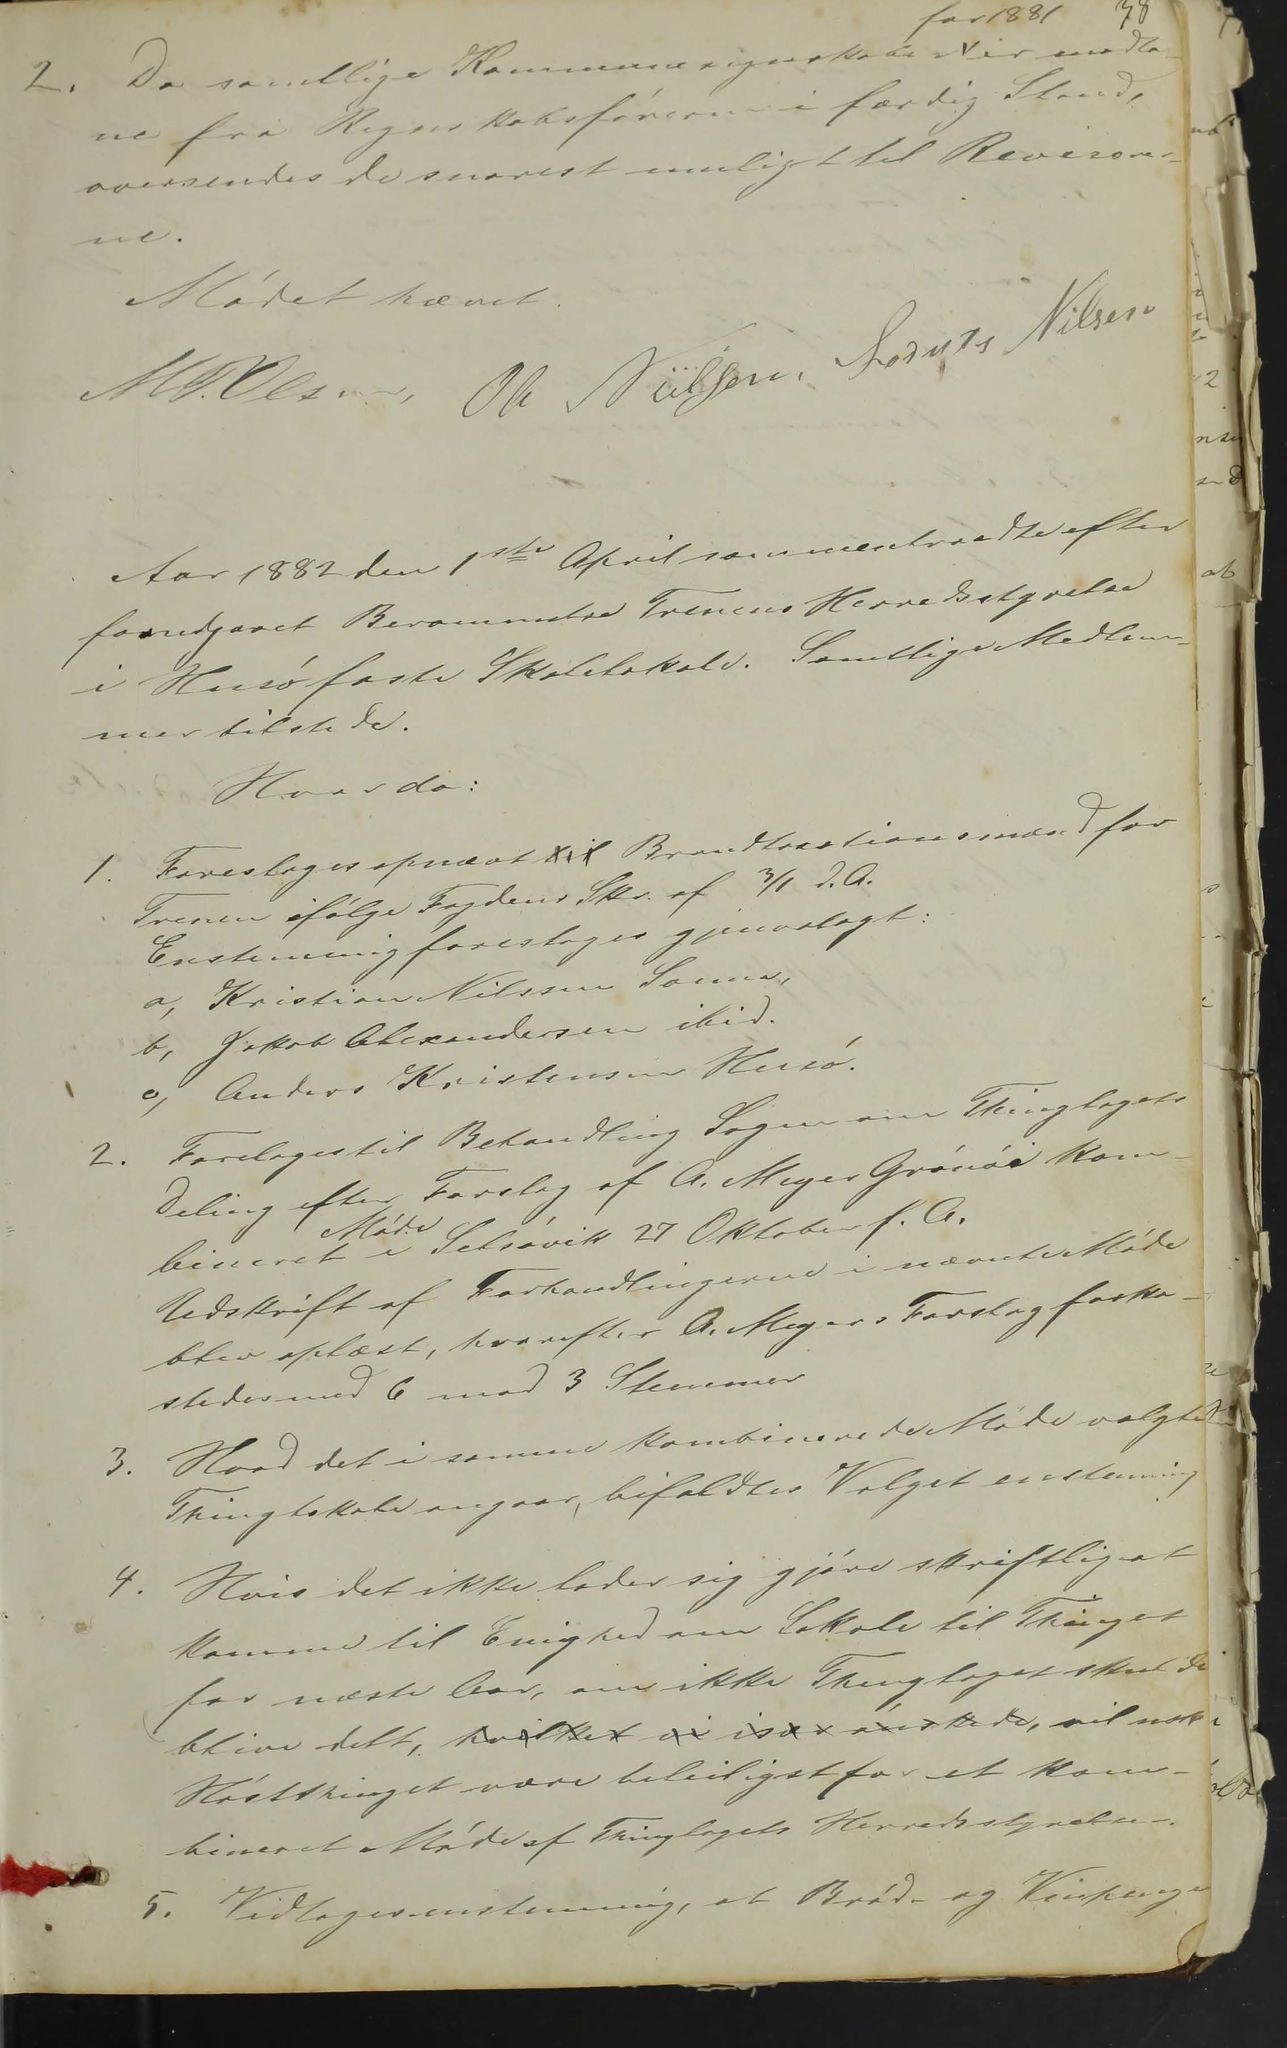 for 1881 38
2. Da samtlige Kommuneregnskaber er modta-
ne fra Regnskabsføreren i færdig Stand,
oversendes de snarest muligt til Revisorer-
ne.
Mødet hævet.
M F. Olsen, Ole Nielsen, Nilsen
Aar 1882 den 1ste April sammentraadte efter
forudgaaet Berammelse Trænens Herredsstyrelse
i Husø faste Skolelokale. Samtlige Medlem-
mer tilstede.
Hvor da:
1. Foreslages opnævnt til Brandtaxationsmænd for
Trænen ifølge Fogdens Skr. af 3/1 d. A.
Enstemmig foreslages gjenvalgt:
a, Kristian Nilssen Sanna,
b, Jakob Alexandersen ibid.
c, Anders Kristensen Husø.
2. Foretages til Behandling Sagen om Thinglagets
Deling efter Forslag af A. Meyer Grønøi kom-
bineret Møde i Selsøvik 27 Oktober f. A.
Udskrift af Forhandlingerne i nævnte Møde
blev oplæst, hvorefter A. Meyers Forslag forka-
stedes med 6 mod 3 Stemmer
3. Hvad det i samme kombinerede Møde valgte
Thinglokale angaar, bifaldtes Valget enstemmig
4. Hvis det ikke lader sig gjøre skriftlig at
komme til Enighed om Lokale til Thinget
for næste Aar, om ikke Thinglaget skulde
blive delt, hvilket vi især ønskede, vil
Høstthinget være beleiligst for et kom-
bineret Møde af Thinglagets Herredsstyrelse.
5. Vedtages enstemmig, at Brød- og Vinpenge